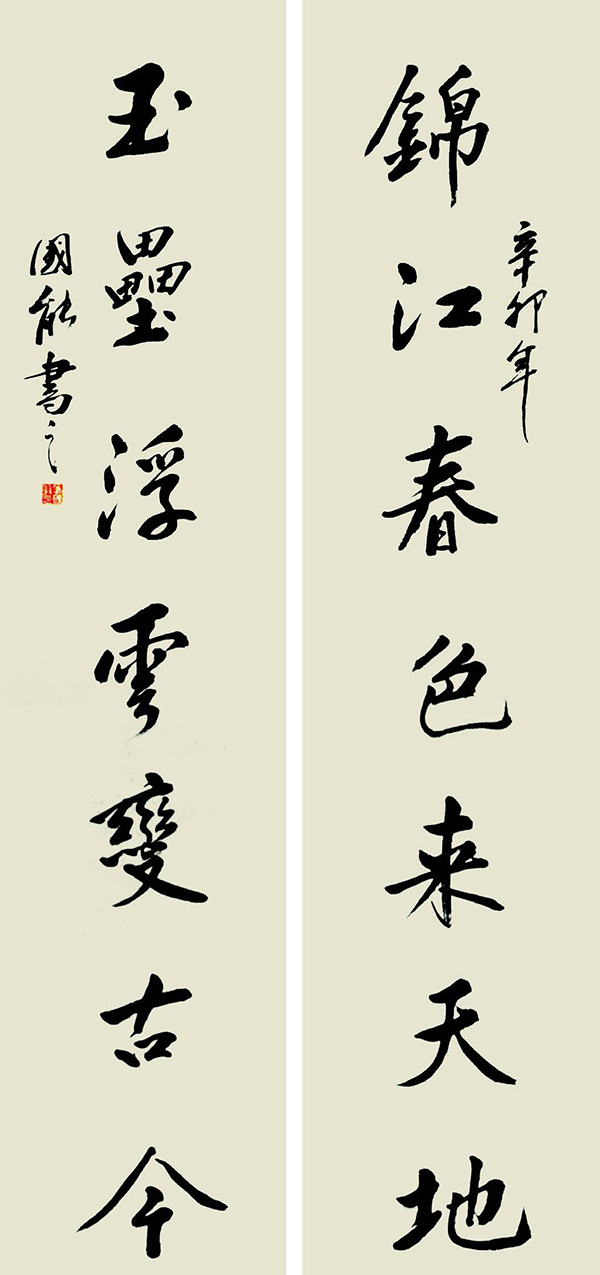 錦江春色来天地
辛卯年
玉壘浮雲變古今
國能書之